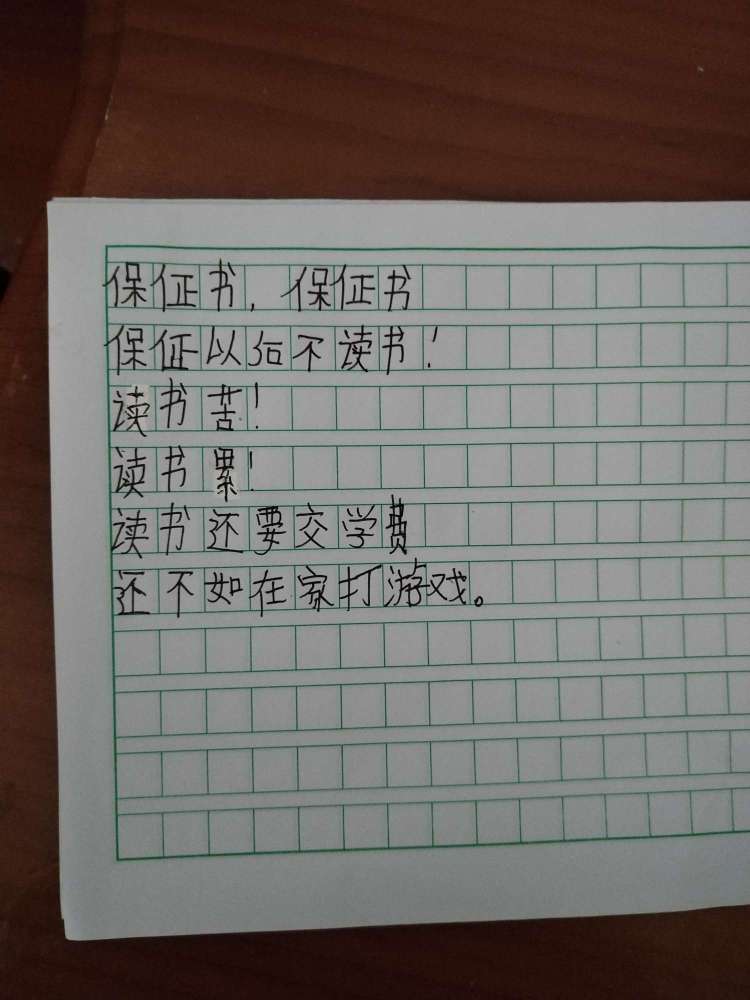 保证书，保证书
保证以后不读书！
读书苦！
读书累！
读书还要交学费
还不如在家打游戏。